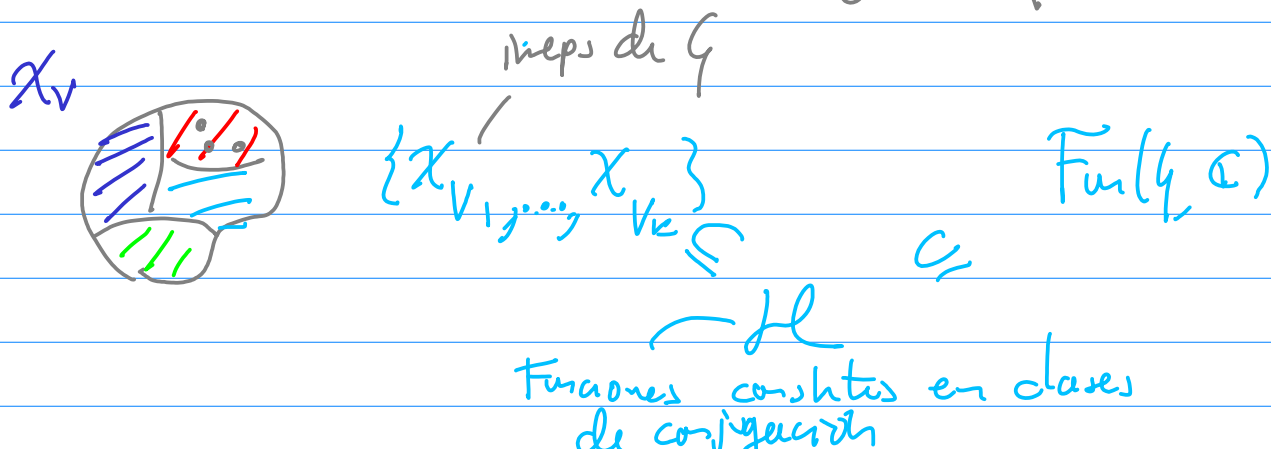 irreps de G
χ_V
{χ_{V_1}, ...., χ_{V_k}} ⊆ H ⊆ Fun(G, ℂ)
Funciones constntes en clases
de conjugación